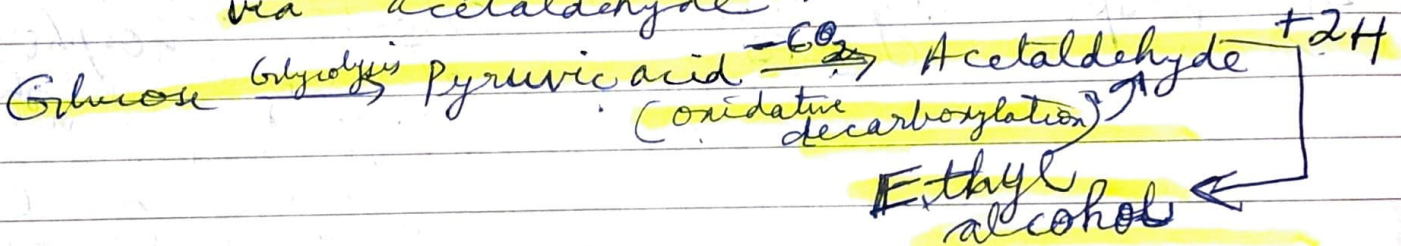 via acetaldehyde
Glucose Glycolysis → Pyruvic acid -CO2 → Acetaldehyde +2H
(oxidative
decarboxylation)
Ethyl
alcohol